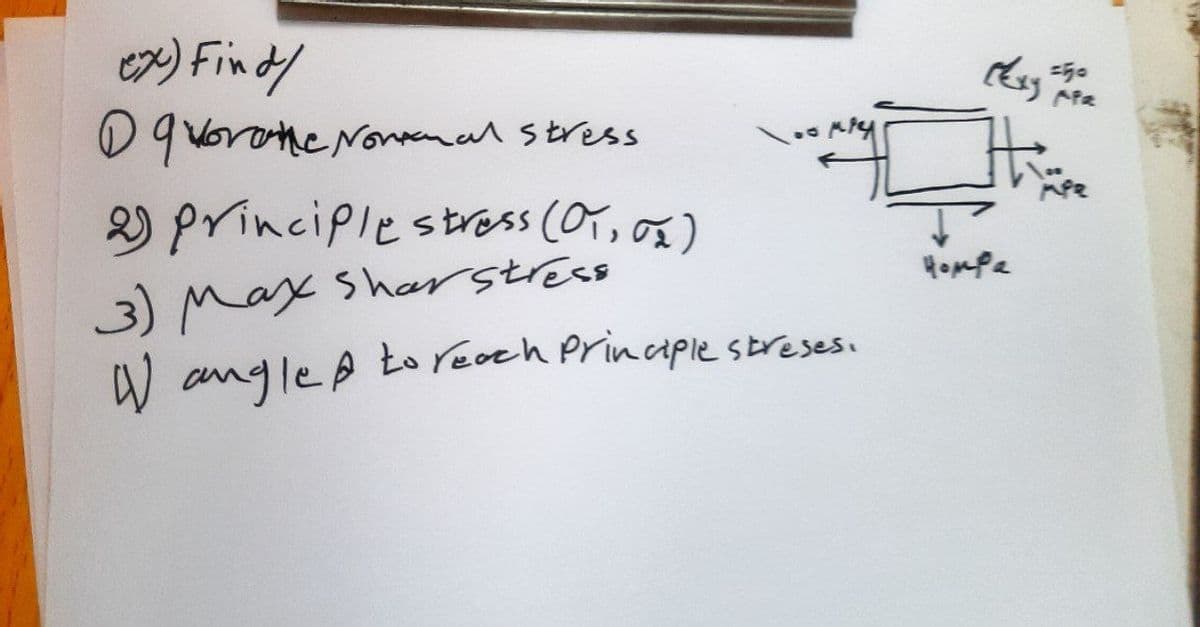 ex) Find/
① avorathe Normal stress
2) principle stress (σ1, σ2)
3) Max shar stress
4) angle θ to reach principle streses.
τxy =50 MPa
100 MPa
100 MPa
40MPa